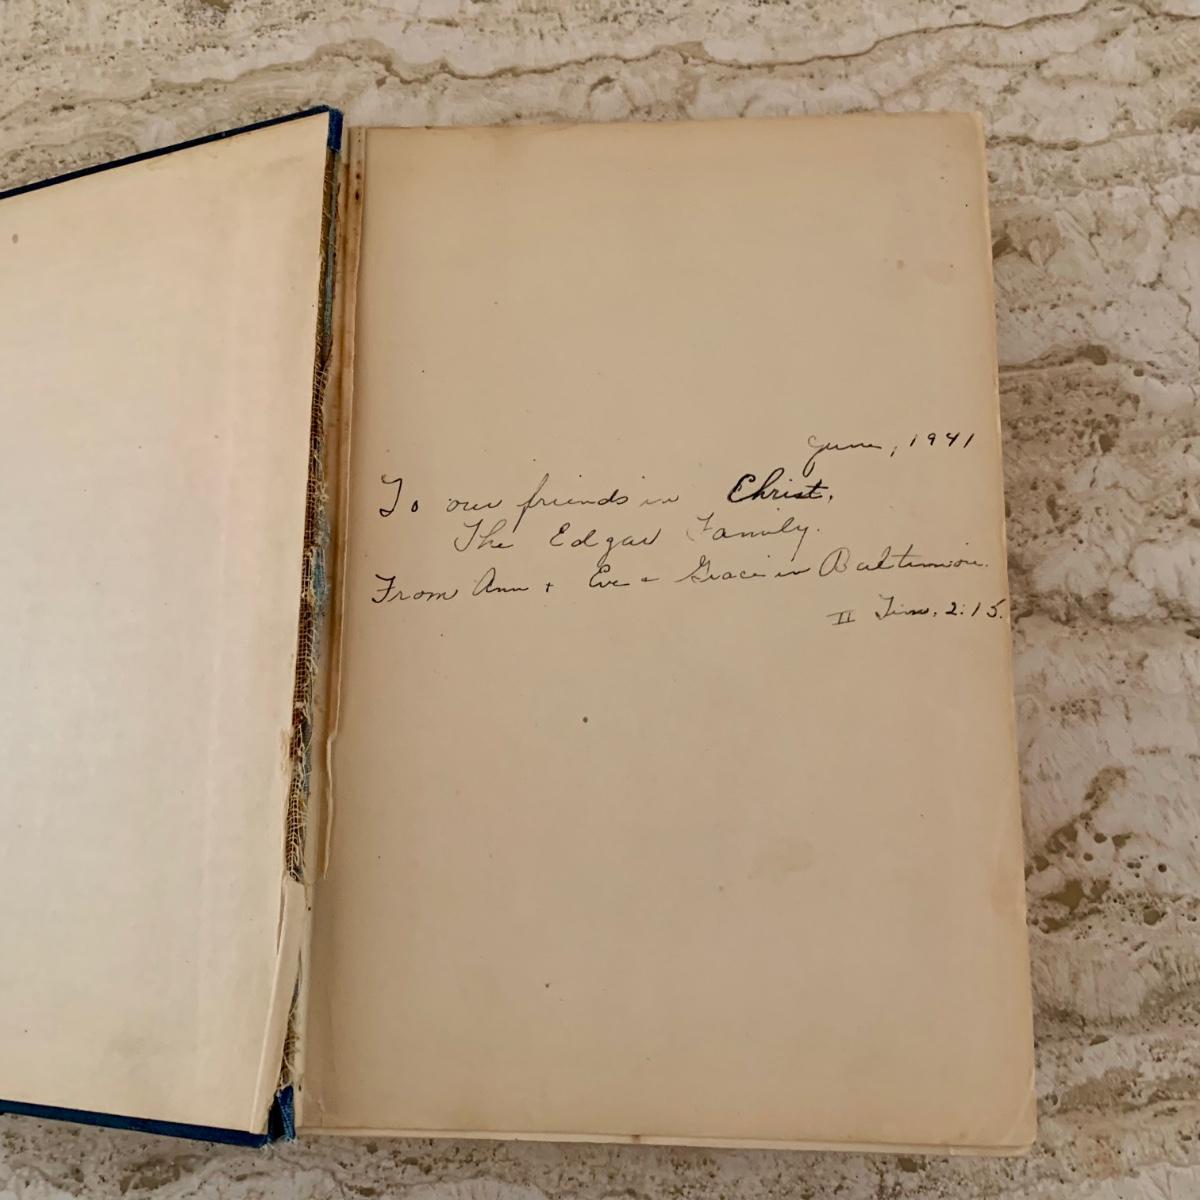 June, 1941
To our friends in Christ,
The Edgar Family.
From Ann + Eve + Grace in Baltimore.
II Tim. 2:15.